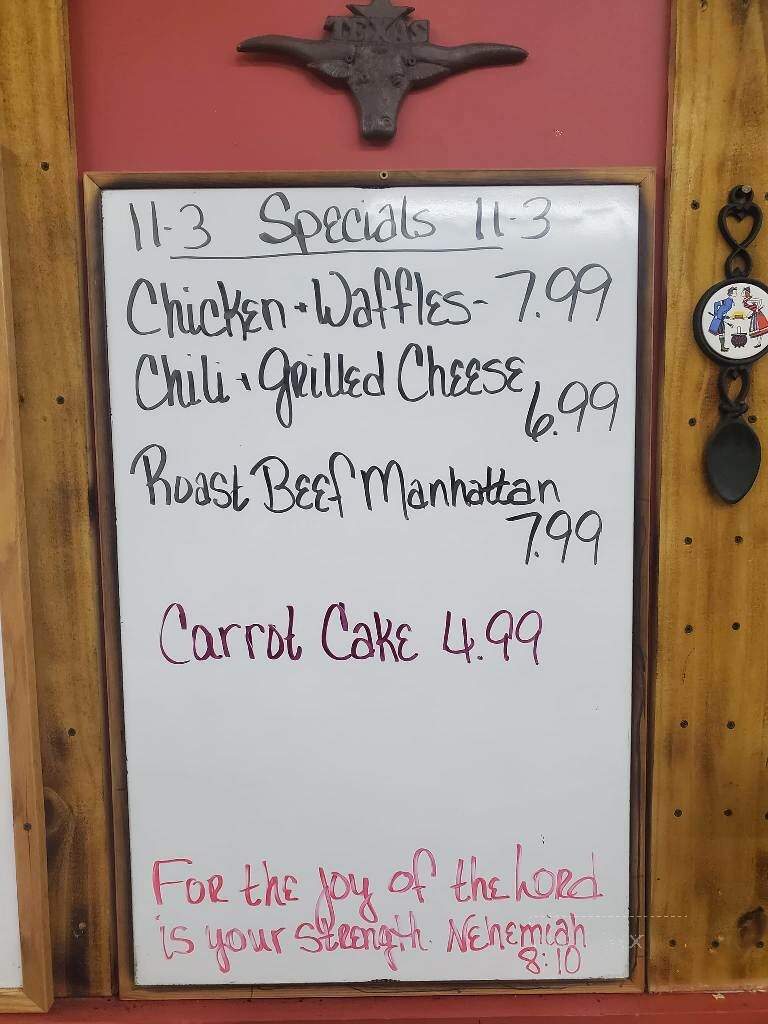 TEXAS
11-3 Specials 11-3
Chicken + Waffles - 7.99
Chili + Grilled Cheese
6.99
Roast Beef Manhattan
7.99
Carrot Cake 4.99
For the joy of the Lord
is your strength. Nehemiah
8:10